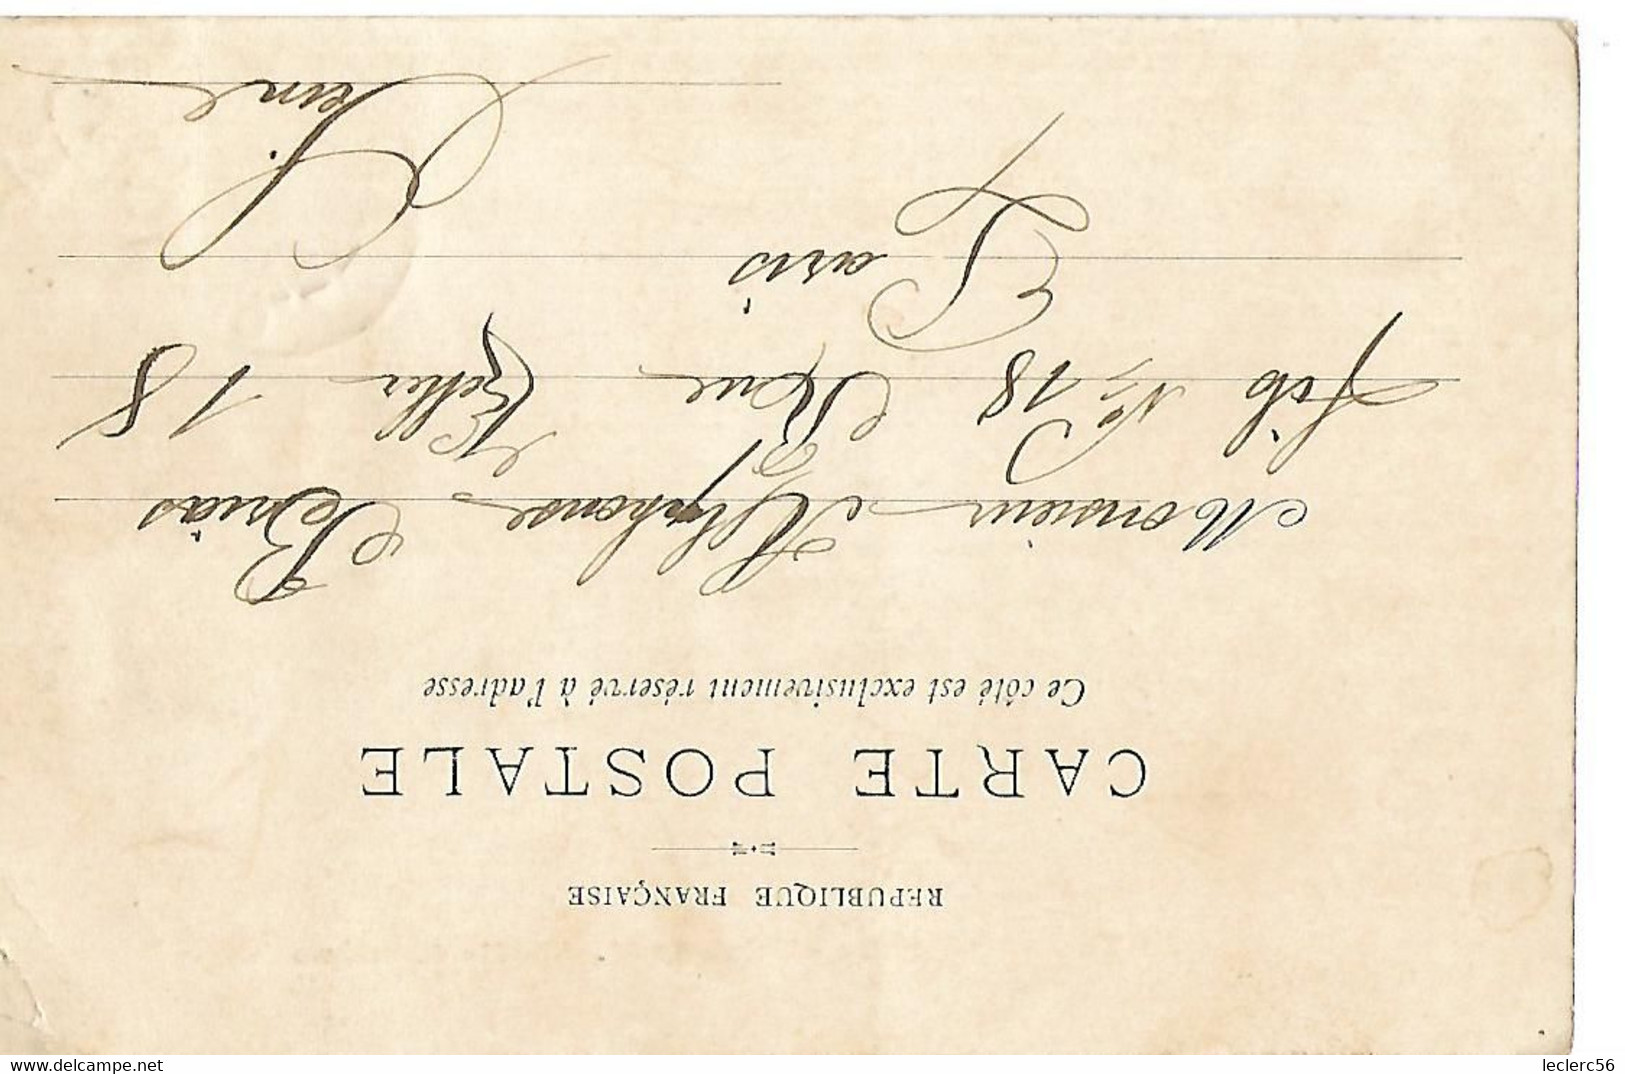 RÉPUBLIQUE FRANÇAISE
CARTE POSTALE
Ce côté est exclusivement réservé à l'adresse
Monsieur Alphonse Brias
No 18 Rue Keller 18
Paris
Seine
https://www.delcampe.net
leclerc56